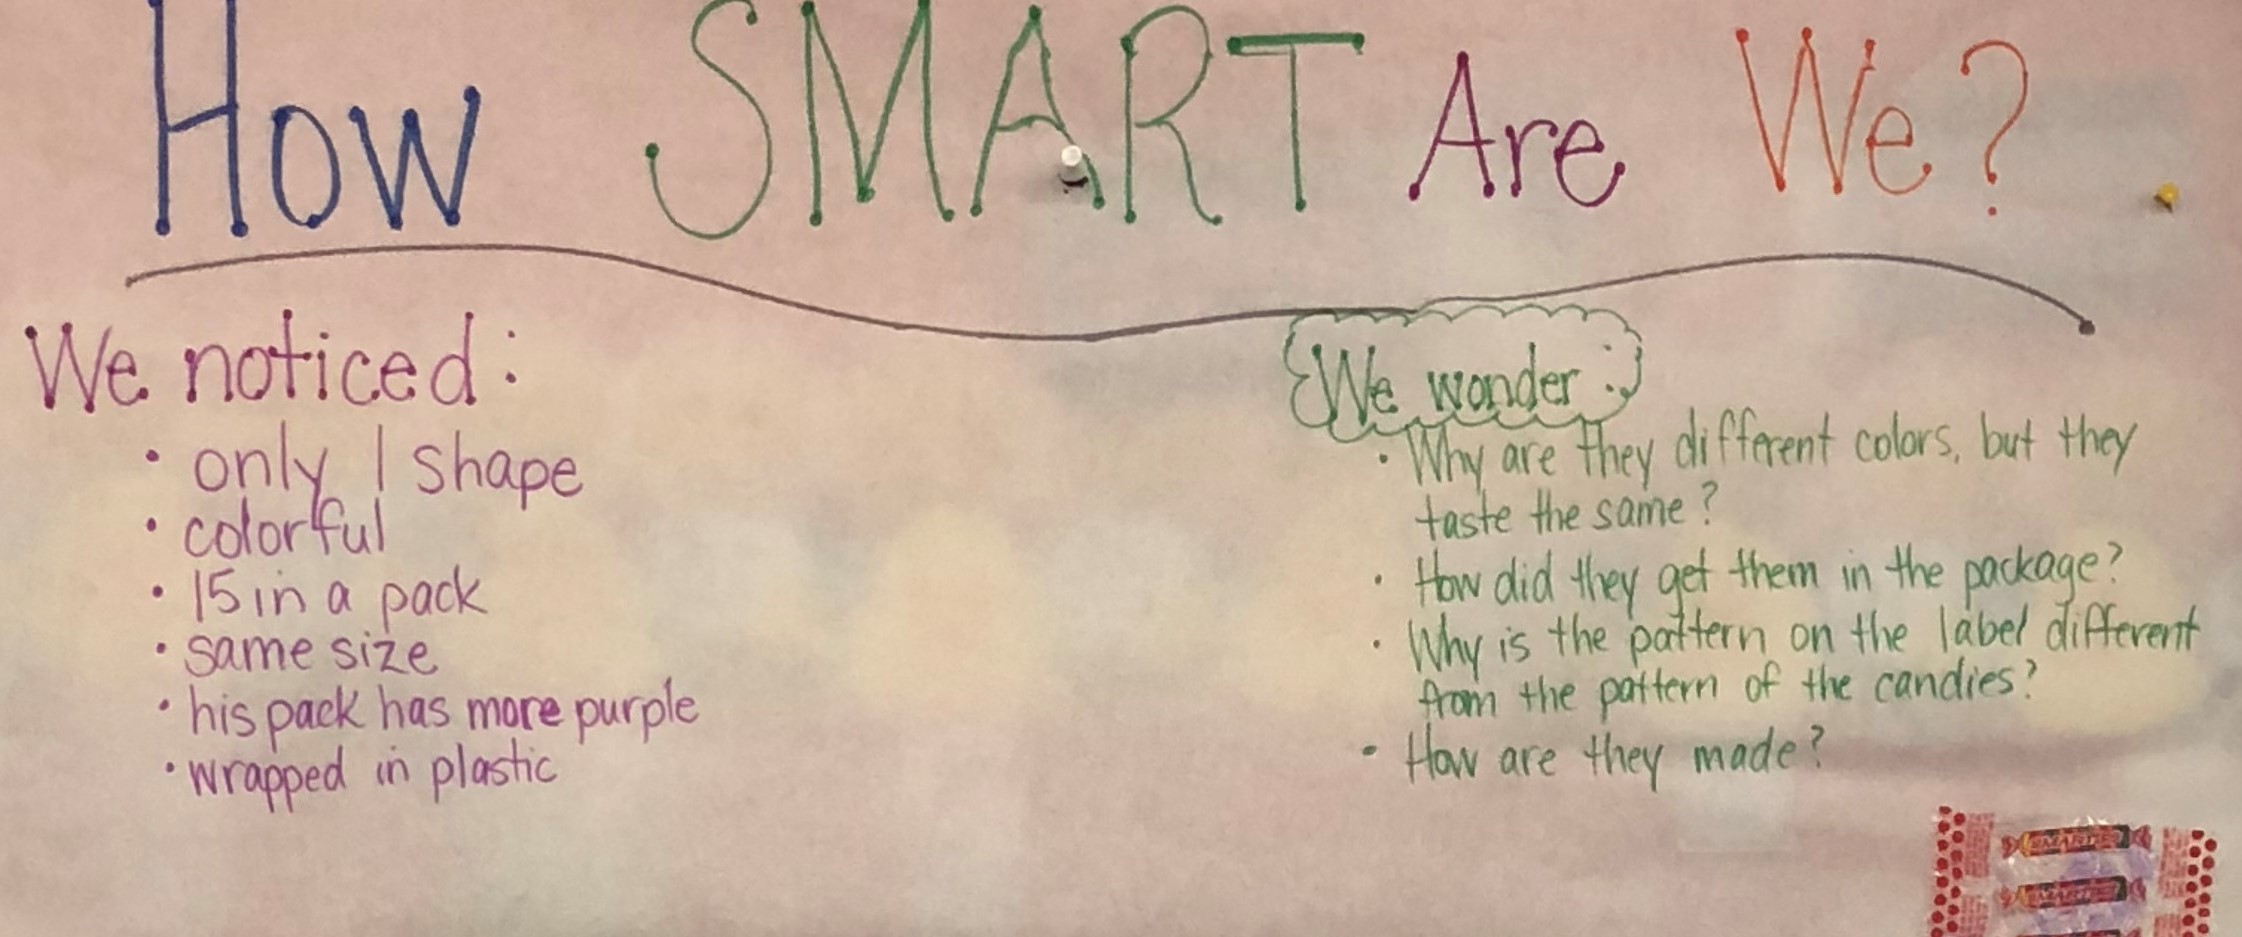 How SMART Are We?
We noticed:
• only 1 shape
• colorful
• 15 in a pack
• same size
• his pack has more purple
• wrapped in plastic
We wonder:
• Why are they different colors, but they
taste the same?
• How did they get them in the package?
• Why is the pattern on the label different
from the pattern of the candies?
• How are they made?